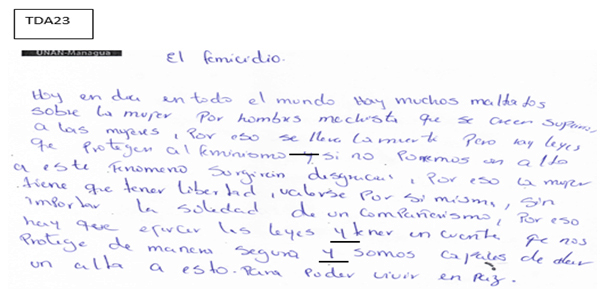 TDA23
UNAN-Managua
El femicidio.
Hoy en dia en todo el mundo Hay muchos maltatos
sobre la mujer Por hombres machista que se creen
a las mujeres, Por eso se lleva la muerte Pero hay leyes
que Protegen al feminismo y si no Ponemos un alto
a este fenomeno surgirán desgracias, Por eso la mujer
tiene que tener libertad, valorse Por si misma, sin
importar la soledad de un compañerismo, Por eso
hay que ejercer las leyes y tener en cuenta que nos
Protige de manera segura y somos capases de dar
un alta a esto. Para Poder vivir en Paz.